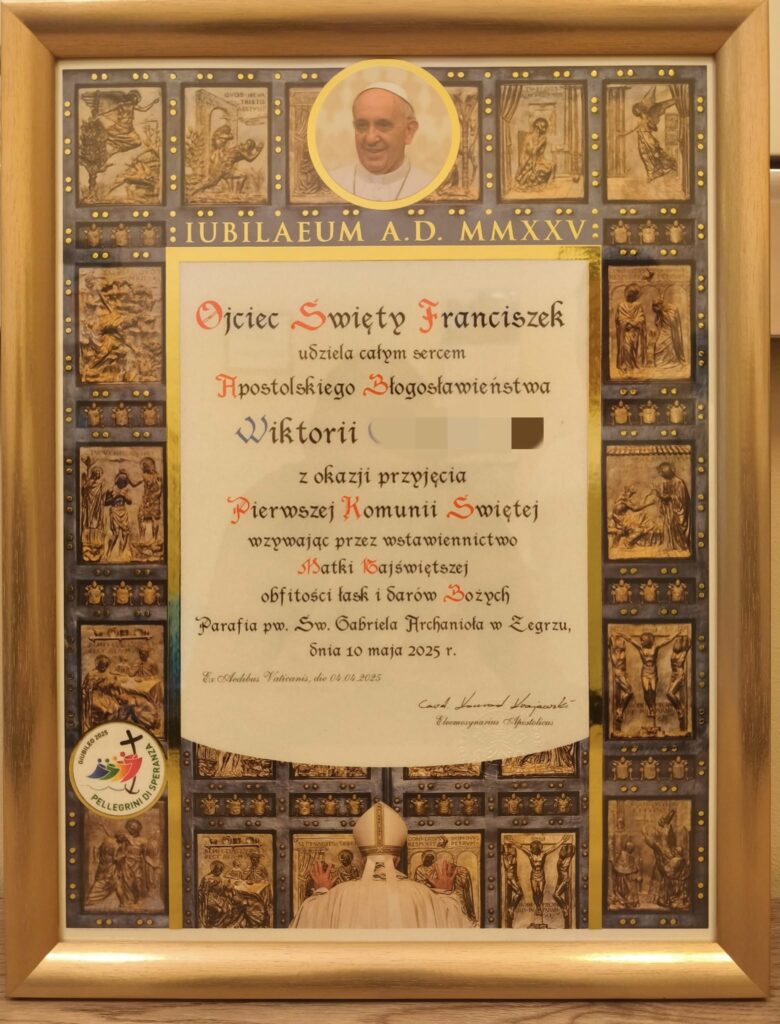 IUBILAEUM A.D. MMXXV
Ojciec Święty Franciszek
udziela całym sercem
Apostolskiego Błogosławieństwa
Wiktorii
z okazji przyjęcia
Pierwszej Komunii Świętej
wzywając przez wstawiennictwo
Matki Najświętszej
obfitości łask i darów Bożych
Parafia pw. Św. Gabriela Archanioła w Zegrzu,
dnia 10 maja 2025 r.
Ex Aedibus Vaticanis, die 04.04.2025
Eleemosynarius Apostolicus
GIUBILEO 2025
PELLEGRINI DI SPERANZA